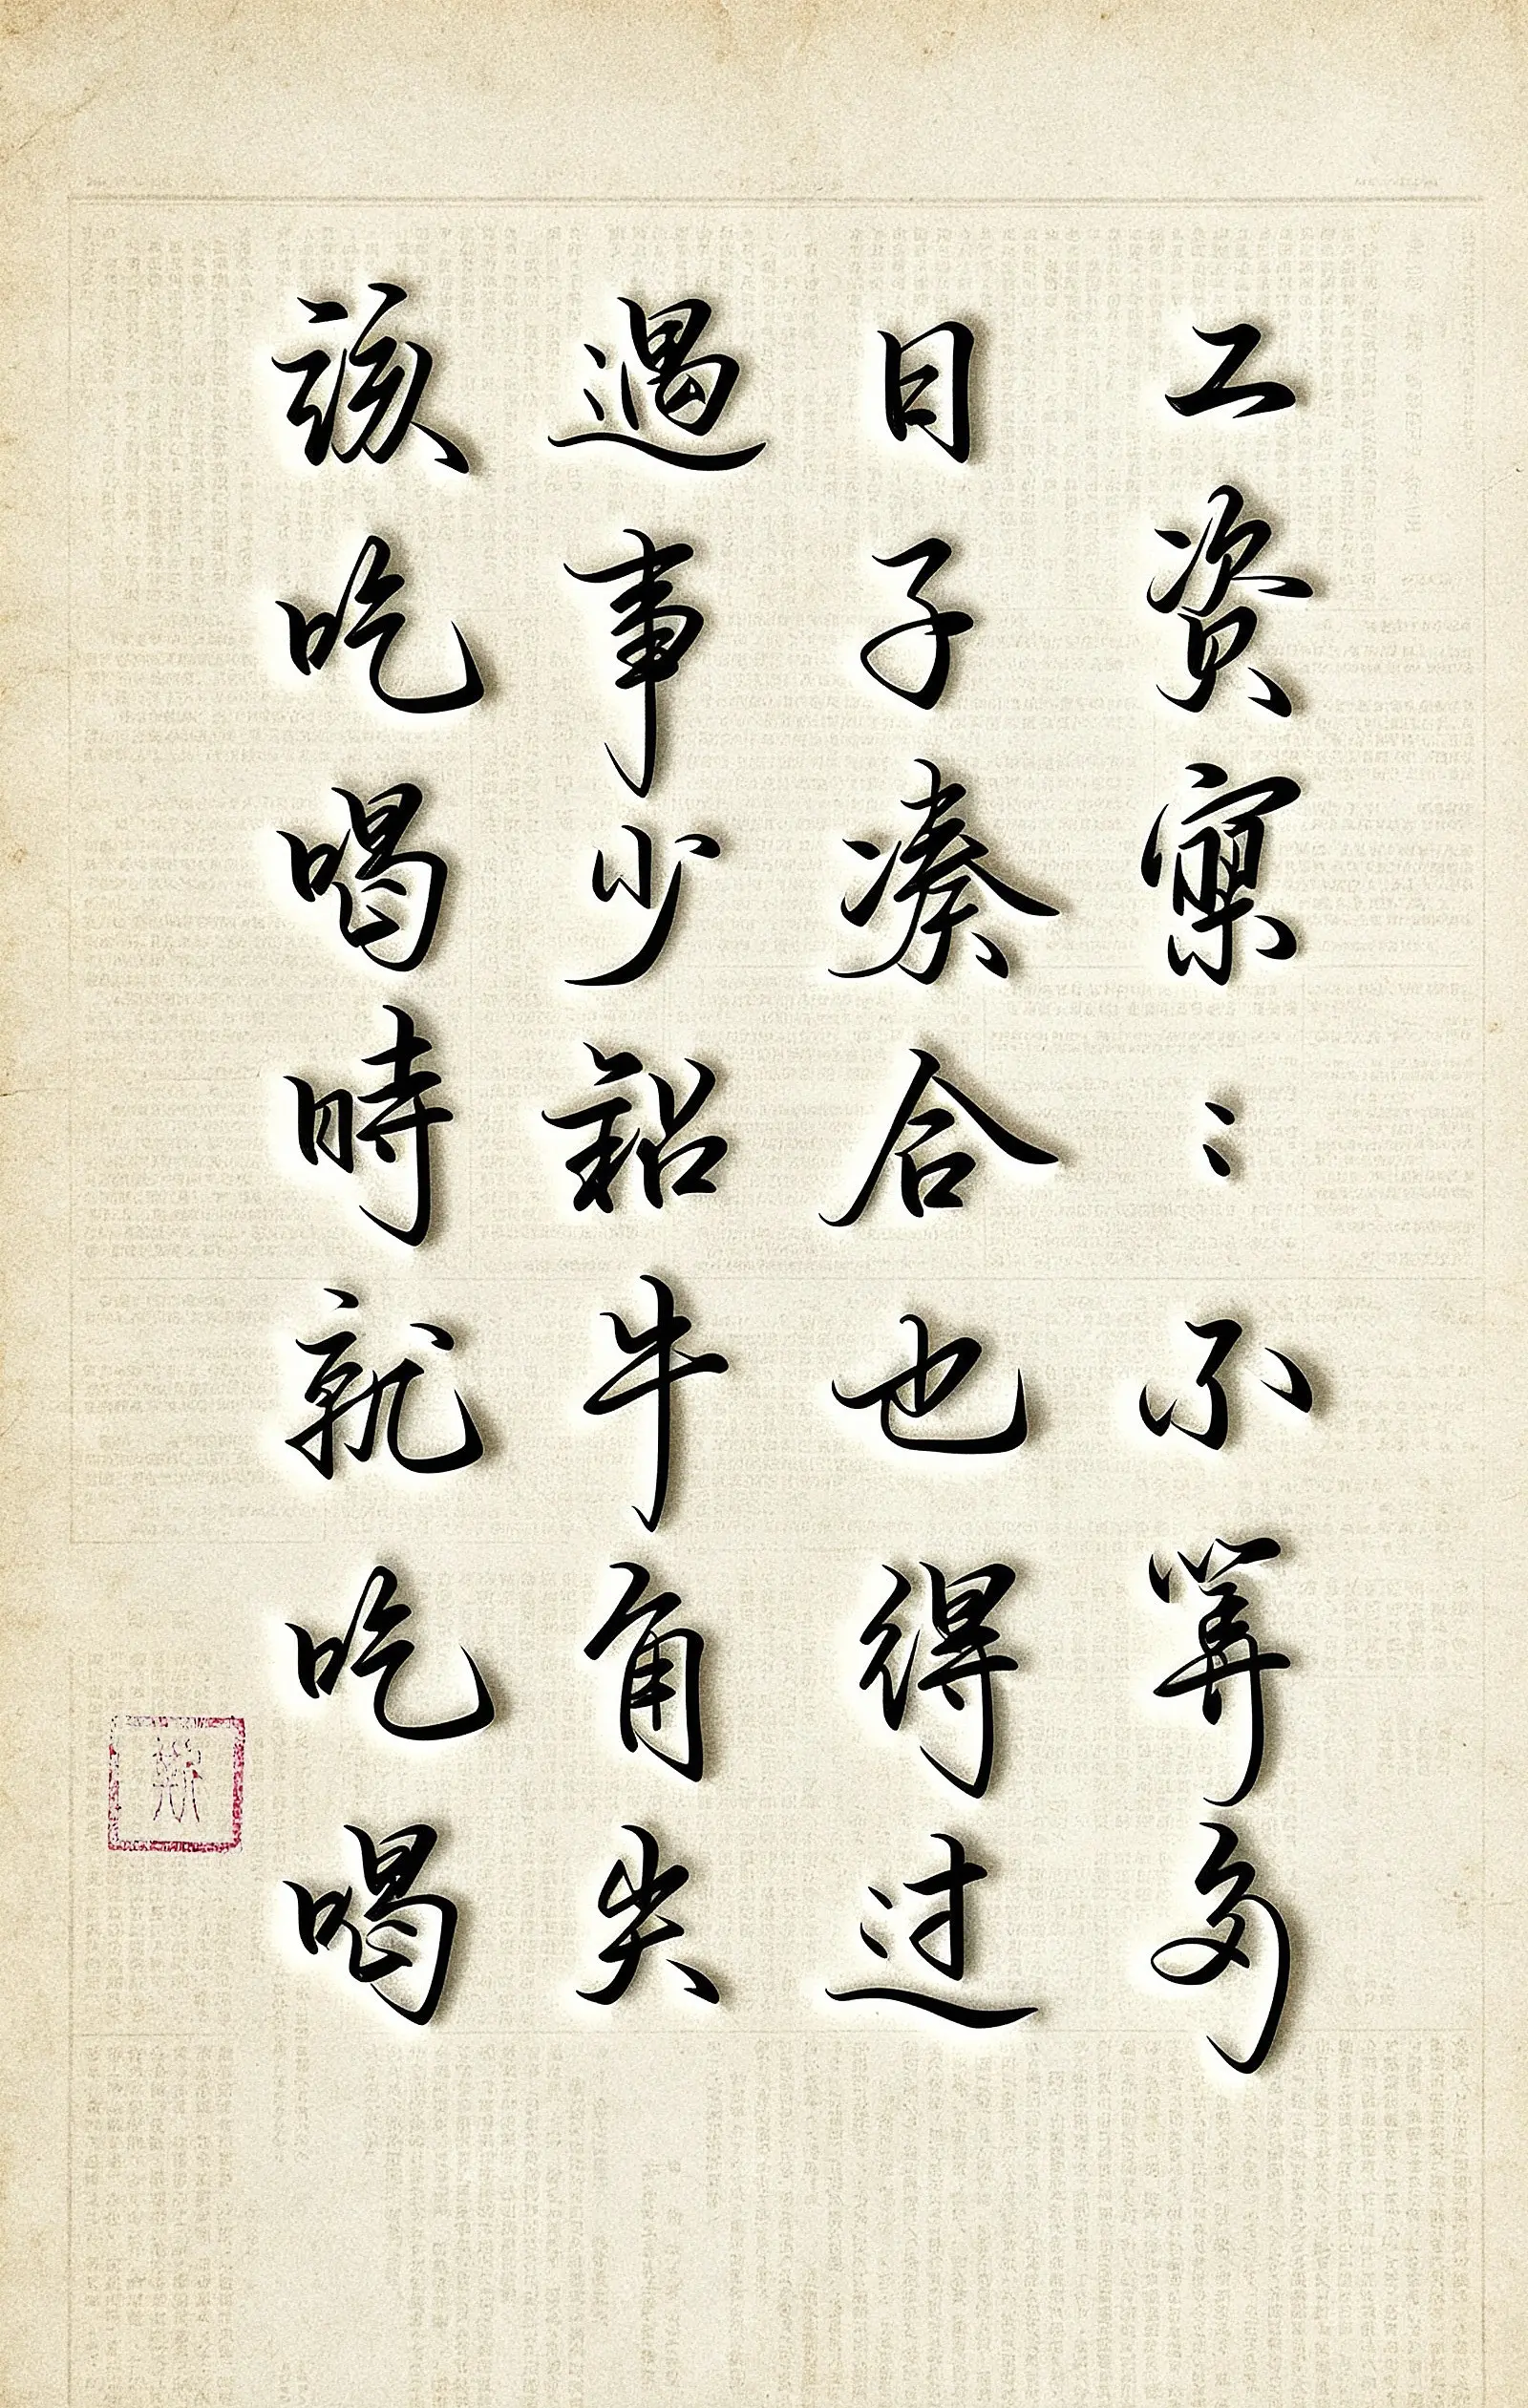 工资寥〻不算多
日子凑合也得过
遇事少钻牛角尖
该吃喝時就吃喝